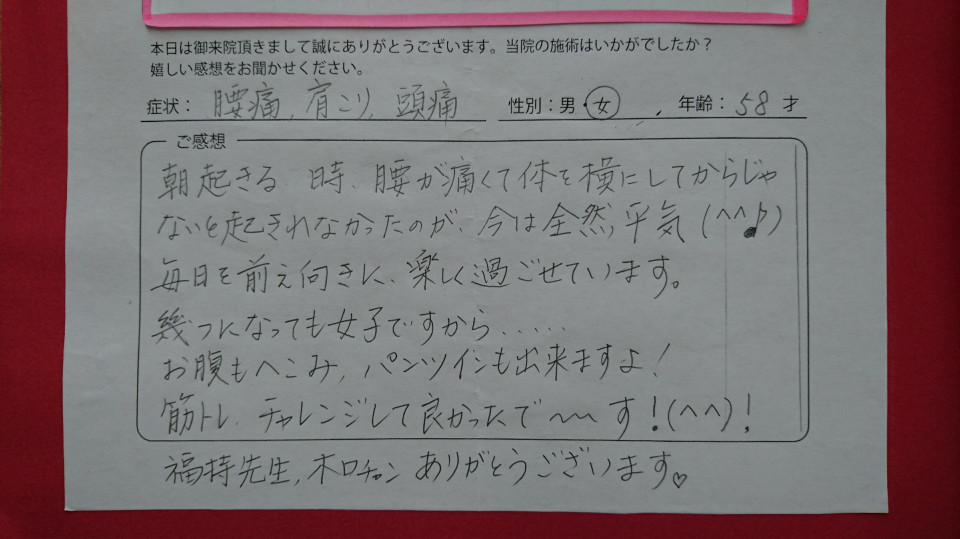 本日は御来院頂きまして誠にありがとうございます。当院の施術はいかがでしたか？
嬉しい感想をお聞かせください。
症状： 腰痛、肩こり、頭痛 性別：男・女 年齢：58才
ご感想
朝起きる時、腰が痛くて体を横にしてからじゃ
ないと起きれなかったのが、今は全然平気(^^♪)
毎日を前え向きに、楽しく過ごせています。
幾つになっても女子ですから......
お腹もへこみ、パンツインも出来ますよ！
筋トレ、チャレンジして良かったで〜〜す！(^^)！
福持先生、ホロチャンありがとうございます♡